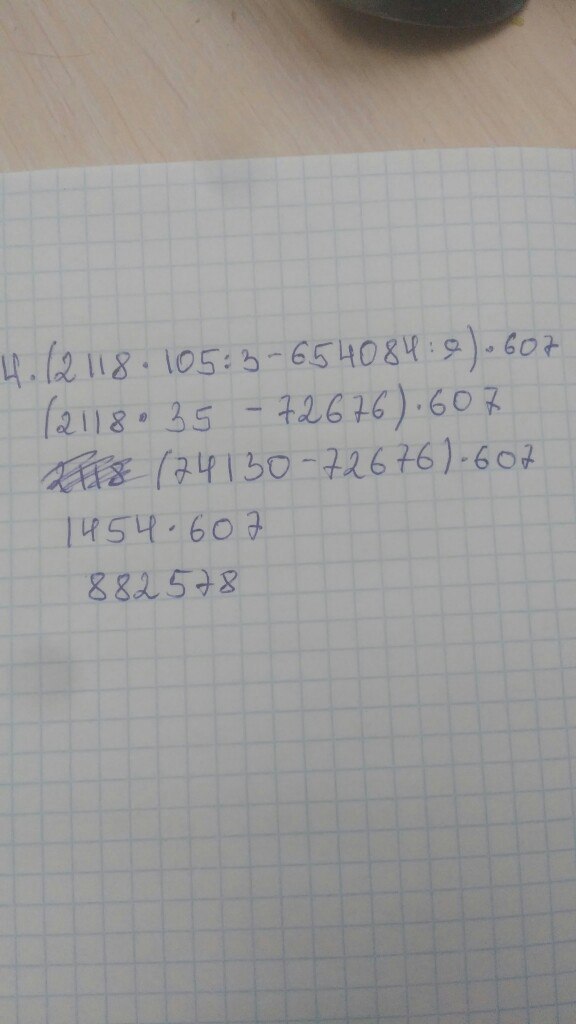 4. (2118 · 105 : 3 - 654084 : 9) · 607
(2118 · 35 - 72676) · 607
(74130 - 72676) · 607
1454 · 607
882578